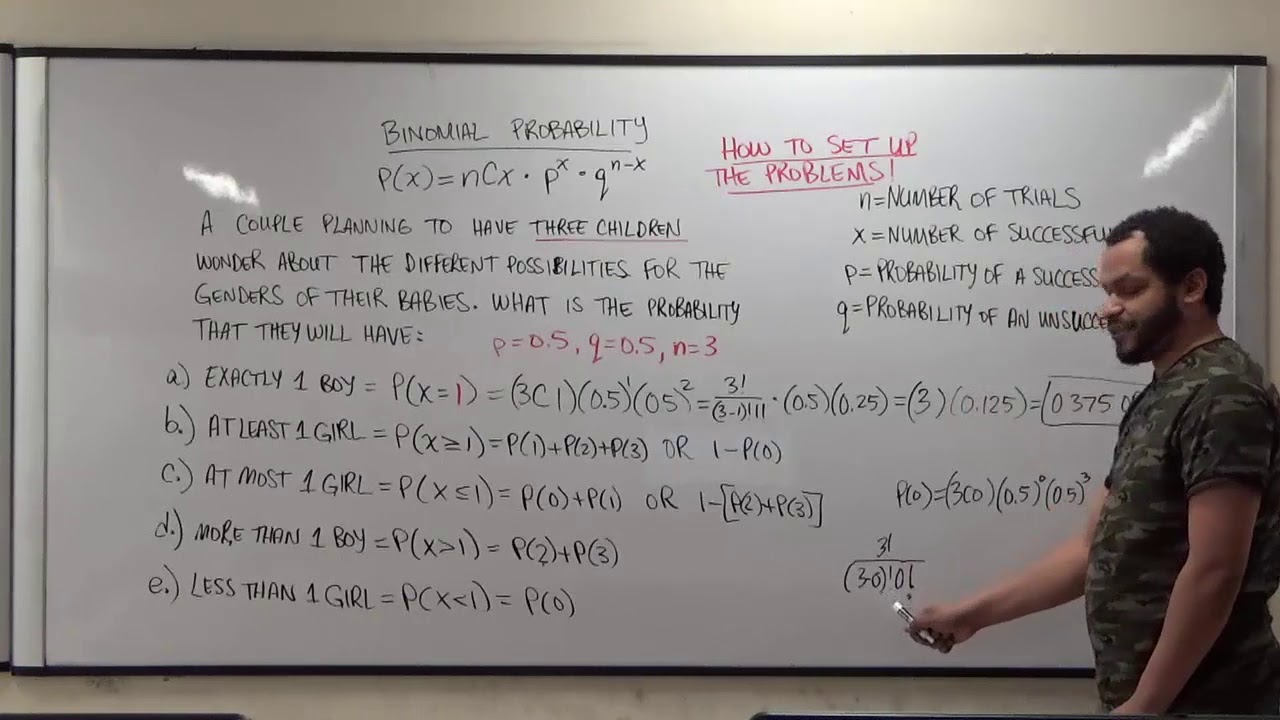 BINOMIAL PROBABILITY
P(x)=nCx · p^x · q^(n-x)
HOW TO SET UP
THE PROBLEMS!
n=NUMBER OF TRIALS
x=NUMBER OF SUCCESSFU
p=PROBABILITY OF A SUCCESS
q=PROBABILITY OF AN UNSUCCE
A COUPLE PLANNING TO HAVE THREE CHILDREN
WONDER ABOUT THE DIFFERENT POSSIBILITIES FOR THE
GENDERS OF THEIR BABIES. WHAT IS THE PROBABILITY
THAT THEY WILL HAVE:
p=0.5, q=0.5, n=3
a) EXACTLY 1 BOY = P(x=1) = (3C1)(0.5)^1(0.5)^2 = 3!/(3-1)!1! · (0.5)(0.25) = (3)(0.125) = 0.375
b.) AT LEAST 1 GIRL = P(x≥1) = P(1)+P(2)+P(3) OR 1-P(0)
c.) AT MOST 1 GIRL = P(x≤1) = P(0)+P(1) OR 1-[P(2)+P(3)]
d.) MORE THAN 1 BOY = P(x>1) = P(2)+P(3)
e.) LESS THAN 1 GIRL = P(x<1) = P(0)
P(0)=(3C0)(0.5)^0(0.5)^3
3!
(3-0)!0!